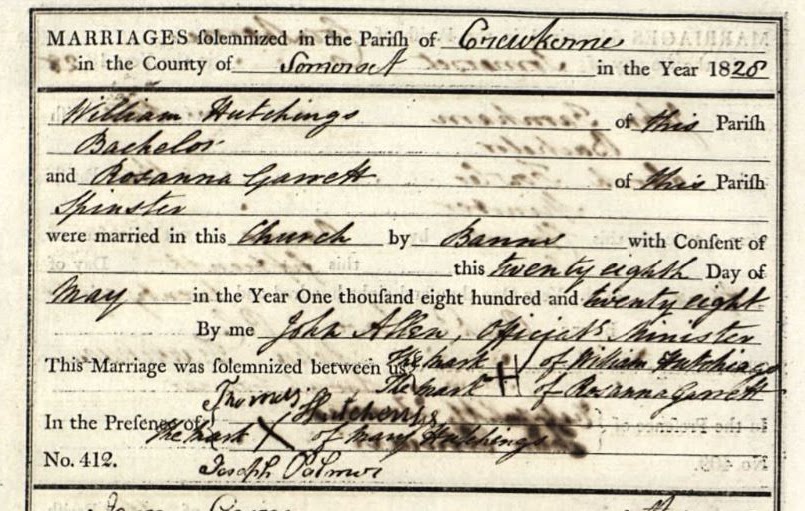 MARRIAGES ſolemnized in the Pariſh of Crewkerne
in the County of Somerset in the Year 1828
William Hutchings of this Pariſh
Bachelor
and Rosanna Garrett of this Pariſh
Spinster
were married in this Church by Banns with Conſent of
this twenty eighth Day of
May in the Year One thouſand eight hundred and twenty eight
By me John Allen, Officiats Minister
This Marriage was ſolemnized between us The mark of William Hutchings
The mark H of Rosanna Garrett
Thomas Hutchings
In the Preſence of The mark X of Mary Hutchings
No. 412. Joseph Palmer